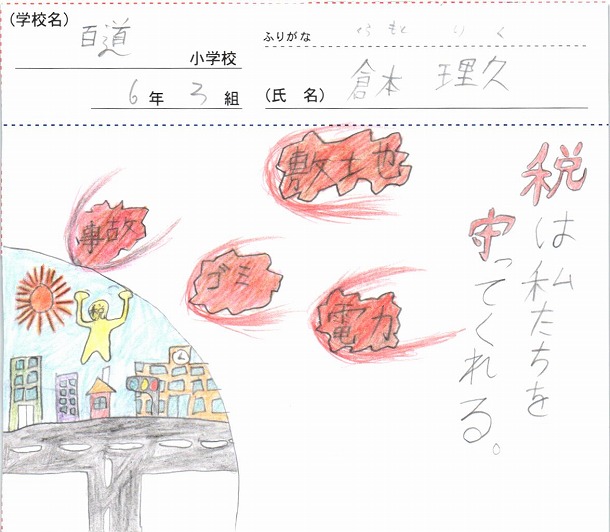 （学校名）
百道
小学校
ふりがな
くらもと りく
6年 3組
（氏 名）
倉本 理久
税は私たちを
守ってくれる。
敷土地
事故
ゴミ
電力
税